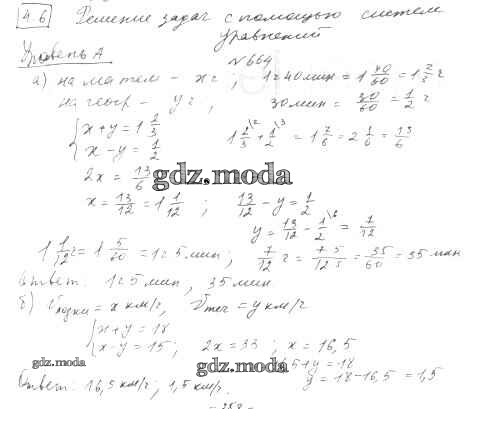 4.6 Решение задач с помощью систем
уравнений
Уровень А
№664
а) на матем - x г ; 1г 40 мин = 1 40/60 = 1 2/3 г
на геогр - y г ; 30 мин = 30/60 = 1/2 г
{ x + y = 1 2/3
x - y = 1/2
1 2/3 + 1/2 = 1 7/6 = 2 1/6 = 13/6
2x = 13/6
gdz.moda
x = 13/12 = 1 1/12 ; 13/12 - y = 1/2
y = 13/12 - 1/2 = 7/12
1 1/12 г = 1 5/60 = 1г 5 мин ; 7/12 г = 7·5/12·5 = 35/60 = 35 мин
Ответ: 1г 5 мин, 35 мин
б) Vлодки = x км/г, Vтеч = y км/г
{ x + y = 18
x - y = 15 ; 2x = 33 ; x = 16,5
gdz.moda gdz.moda 16,5 + y = 18
Ответ: 16,5 км/г ; 1,5 км/г. y = 18 - 16,5 = 1,5